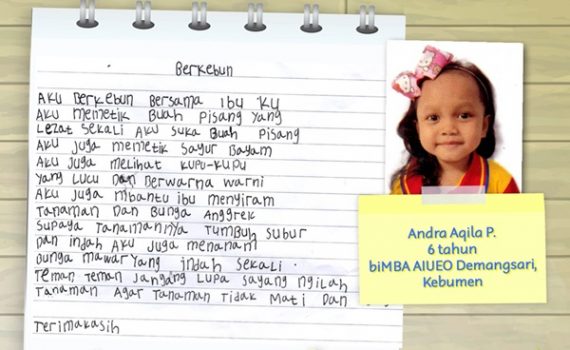 Berkebun
AKU Berkebun Bersama Ibu KU
AKU memetik Buah Pisang Yang
Lezat Sekali AKU Suka Buah Pisang
AKU Juga memetik Sayur Bayam
AKU Juga melihat Kupu-Kupu
Yang Lucu Dan Berwarna warni
AKU Juga mbantu ibu menyiram
Tanaman Dan Bunga Anggrek
Supaya Tanamannya Tumbuh Subur
Dan indah AKU Juga menanam
Bunga mawar Yang indah Sekali.
Teman Teman Jangang Lupa Sayang ngilah
Tanaman Agar Tanaman Tidak Mati Dan
Terimakasih
Andra Aqila P.
6 tahun
biMBA AIUEO Demangsari,
Kebumen